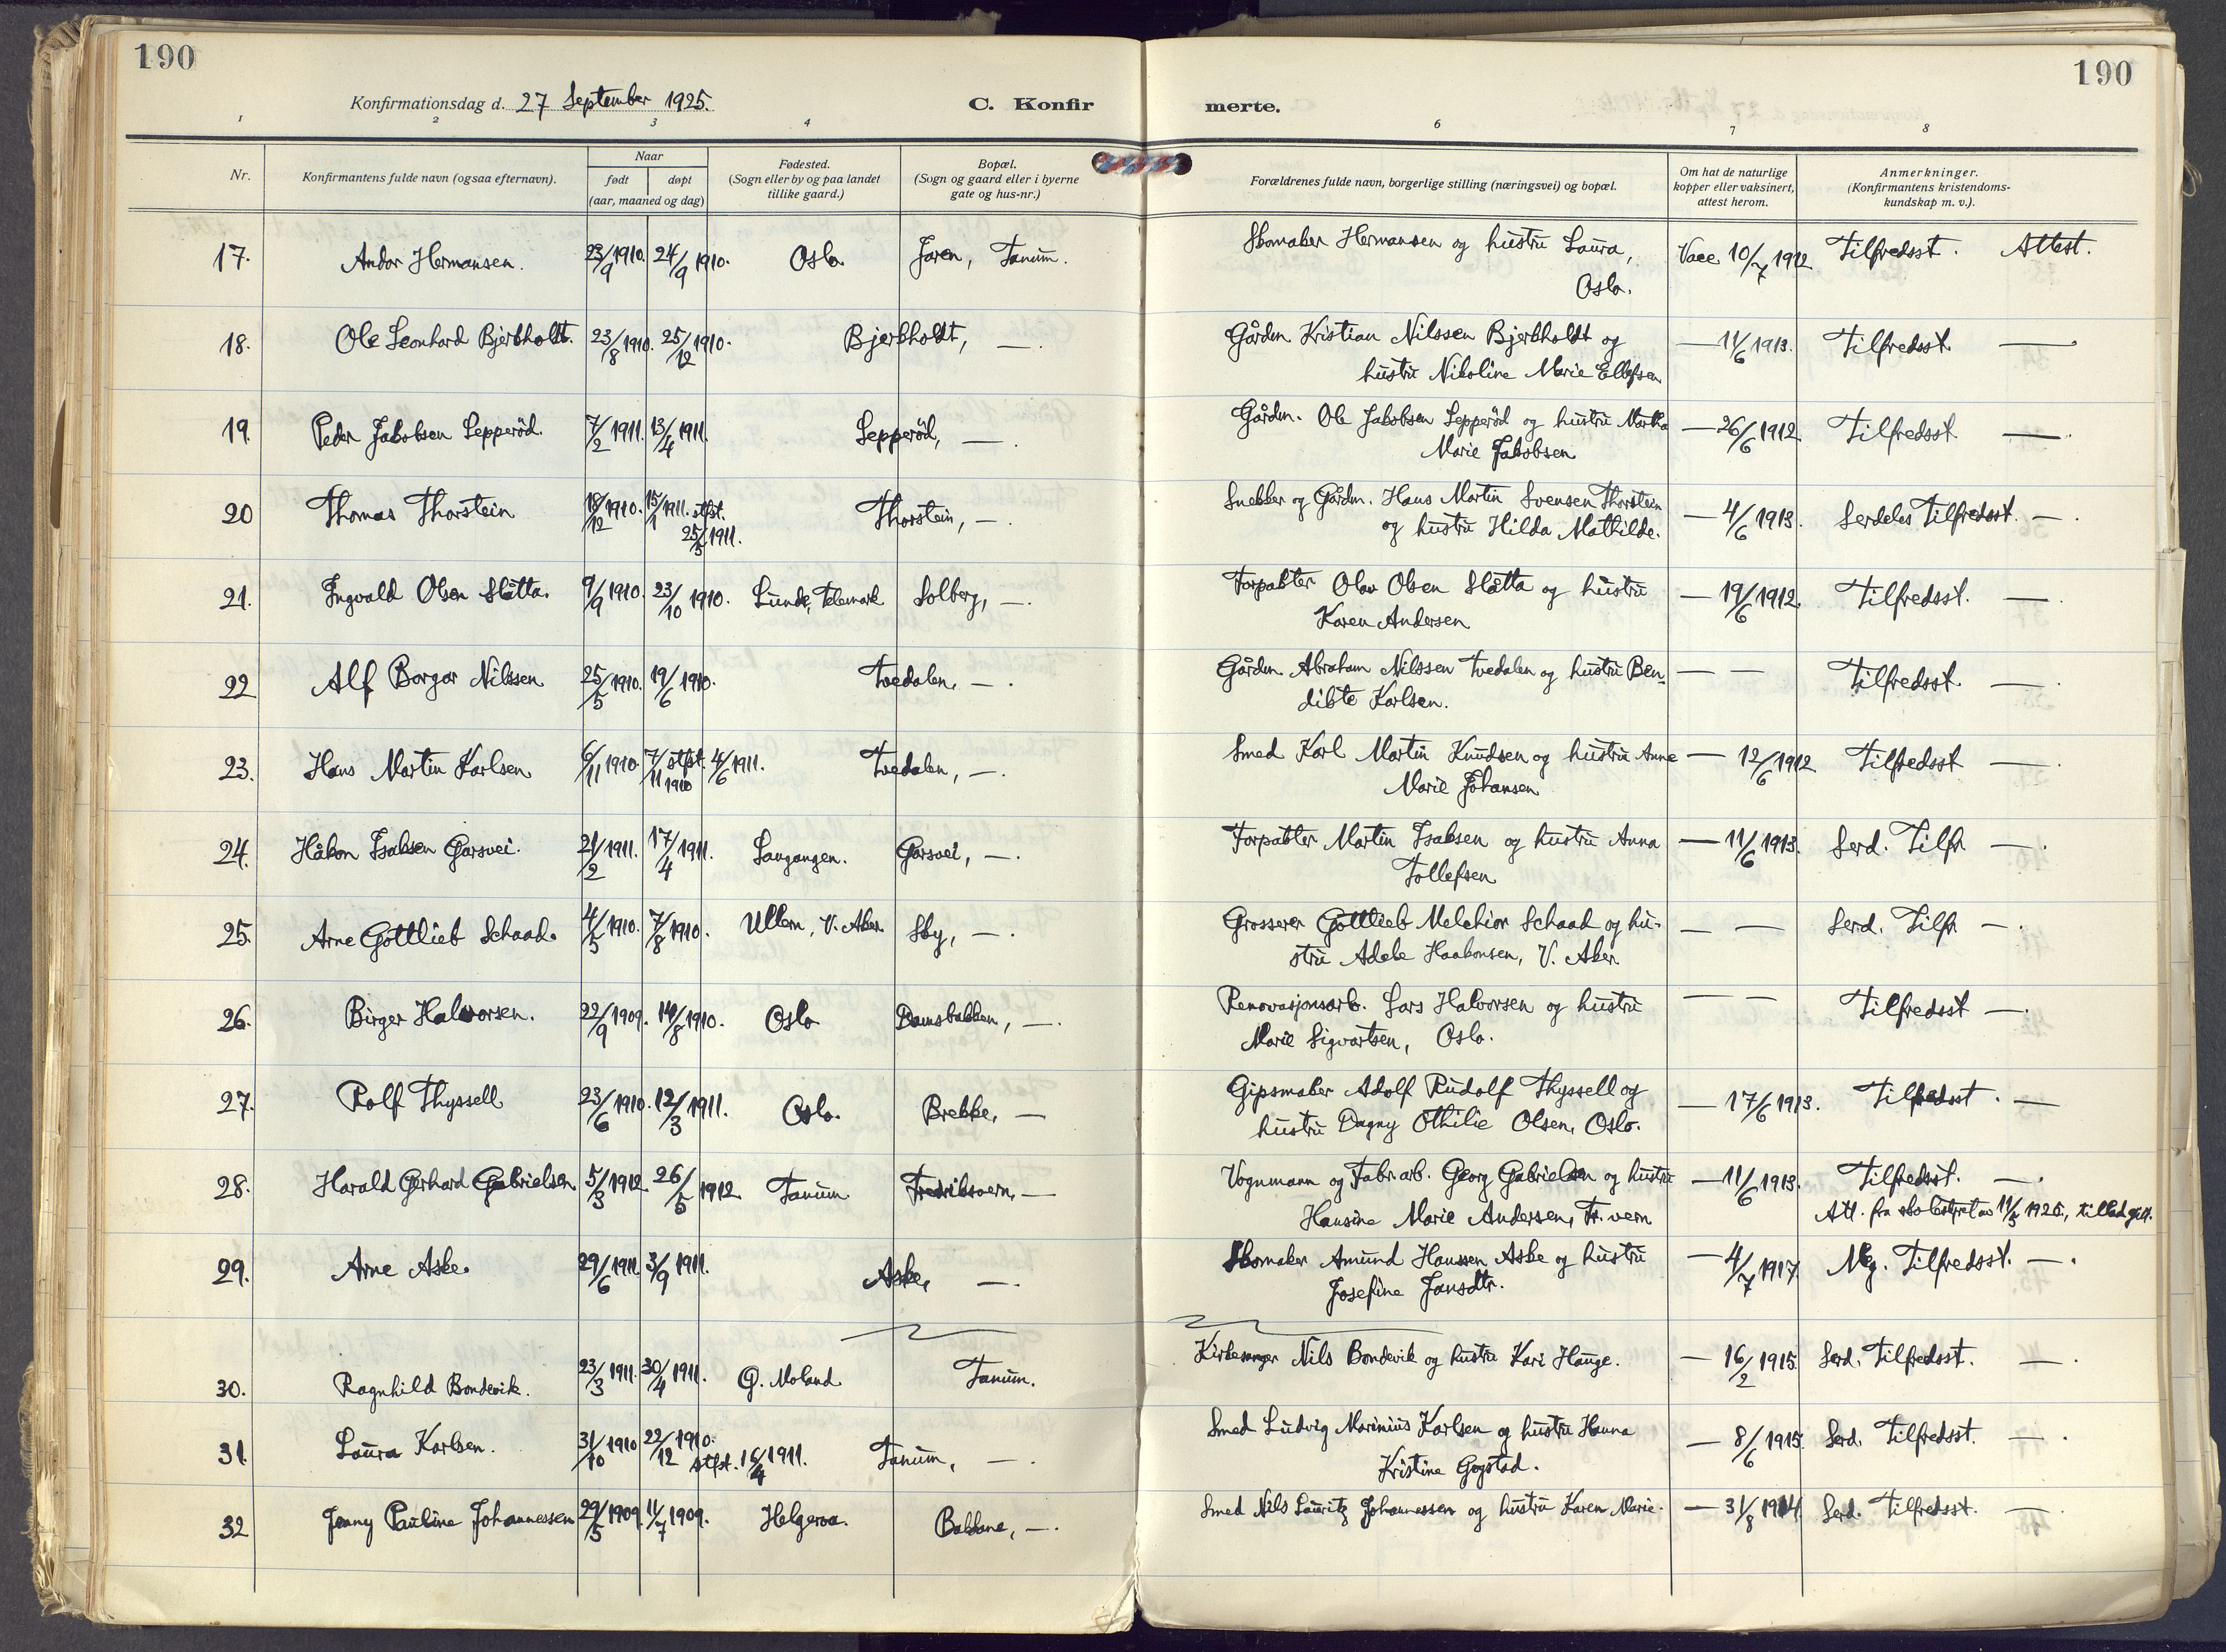 190
190
Konfirmationsdag d. 27 September 1925.
C. Konfir
merte.
1 2 3 4 6 7 8
Nr.
Konfirmantens fulde navn (ogsaa efternavn).
Naar
født døpt
(aar, maaned og dag)
Fødested.
(Sogn eller by og paa landet
tillike gaard.)
Bopæl.
(Sogn og gaard eller i byerne
gate og hus-nr.)
Forældrenes fulde navn, borgerlige stilling (næringsvei) og bopæl.
Om hat de naturlige
kopper eller vaksinert,
attest herom.
Anmerkninger.
(Konfirmantens kristendoms-
kundskap m. v.).
17. Andor Hermansen. 23/9 1910. 24/9 1910. Oslo. Jaren, Tanum. Skomaker Hermansen og hustru Laura, Vacc. 10/7 1912 Tilfredsst. Attest.
Oslo.
18. Ole Leonhard Bjerkholdt. 23/8 1910. 25/12 1910. Bjerkholdt, —. Gårdm. Kristian Nilssen Bjerkholdt og — 11/6 1913. Tilfredsst. —
hustru Nikoline Marie Ellefsen
19. Peder Jakobsen Lepperød. 7/2 1911. 13/4 1911. Lepperød, —. Gårdm. Ole Jakobsen Lepperød og hustru Martha — 26/6 1912. Tilfredsst. —.
Marie Jakobsen
20 Thomas Thorstein 18/12 1910. 15/1 1911. stfst. 25/5 1911. Thorstein, —. Snekker og Gårdm. Hans Martin Svensen Thorstein — 4/6 1913. Serdeles Tilfredsst. —.
og hustru Hilda Mathilde.
21. Ingvald Olsen Slåtta. 9/9 1910. 23/10 1910. Lunde, Telemark Solberg, —. Forpakter Olav Olsen Slåtta og hustru — 19/6 1912. Tilfredsst. —.
Karen Andersen
22 Alf Borgar Nilssen 25/5 1910. 19/6 1910. Tvedalen, —. Gårdm. Abraham Nilssen Tvedalen og hustru Ben- — — Tilfredsst. —.
dikte Karlsen.
23. Hans Martin Karlsen 6/11 1910. 7/11 1910 stfst. 4/6 1911. Tvedalen, —. Smed Karl Martin Knudsen og hustru Anne — 12/6 1912 Tilfredsst —.
Marie Johansen
24. Håkon Isaksen Gårsvei. 21/2 1911. 17/4 1911. Langangen. Gårsvei, —. Forpakter Martin Isaksen og hustru Anna — 11/6 1913. Serd. Tilfr —.
Tollefsen
25. Arne Gottlieb Schaad. 4/5 1910. 7/8 1910. Ullern, V. Aker. Sky, —. Grosserer Gottlieb Melchior Schaad og hu- — — Serd. Tilfr —.
stru Adele Haakonsen, V. Aker.
26. Birger Halvorsen. 22/9 1909. 14/8 1910. Oslo Damsbakken, —. Renovasjonsarb. Lars Halvorsen og hustru — — Tilfredsst —.
Marie Sigvartsen, Oslo.
27. Rolf Thyssell 23/6 1910. 12/3 1911. Oslo. Brekke, — Gipsmaker Adolf Rudolf Thyssell og — 17/6 1913. Tilfredsst. —
hustru Dagny Othilie Olsen, Oslo.
28. Harald Gerhard Gabrielsen 5/3 1912. 26/5 1912. Tanum Fredriksvern, — Vognmann og Fabr.arb. Georg Gabrielsen og hustru — 11/6 1913. Tilfredsst. —.
Hansine Marie Andersen, Fr.vern Att. fra skolestyret av 11/5 1925, tillad gitt.
29. Arne Aske. 29/6 1911. 3/9 1911. Aske, —. Skomaker Amund Hanssen Aske og hustru — 4/7 1917. Mg. Tilfredsst. —.
Josefine Jansdtr.
30. Ragnhild Bondevik. 23/3 1911. 30/4 1911. Ø. Moland Tanum. Kirkesanger Nils Bondevik og hustru Kari Hauge. — 16/2 1915. Serd. Tilfredsst. —.
31. Laura Karlsen. 31/10 1910 22/12 1910. stfst. 16/4 1911. Tanum, —. Smed Ludvig Marinius Karlsen og hustru Hanna — 8/6 1915. Serd. Tilfredsst. —.
Kristine Gogstad.
32 Jenny Pauline Johannessen 29/5 1909. 11/7 1909. Helgeroa. Bakkane, —. Smed Nils Lauritz Johannessen og hustru Karen Marie. — 31/8 1914. Serd. Tilfredsst. —.